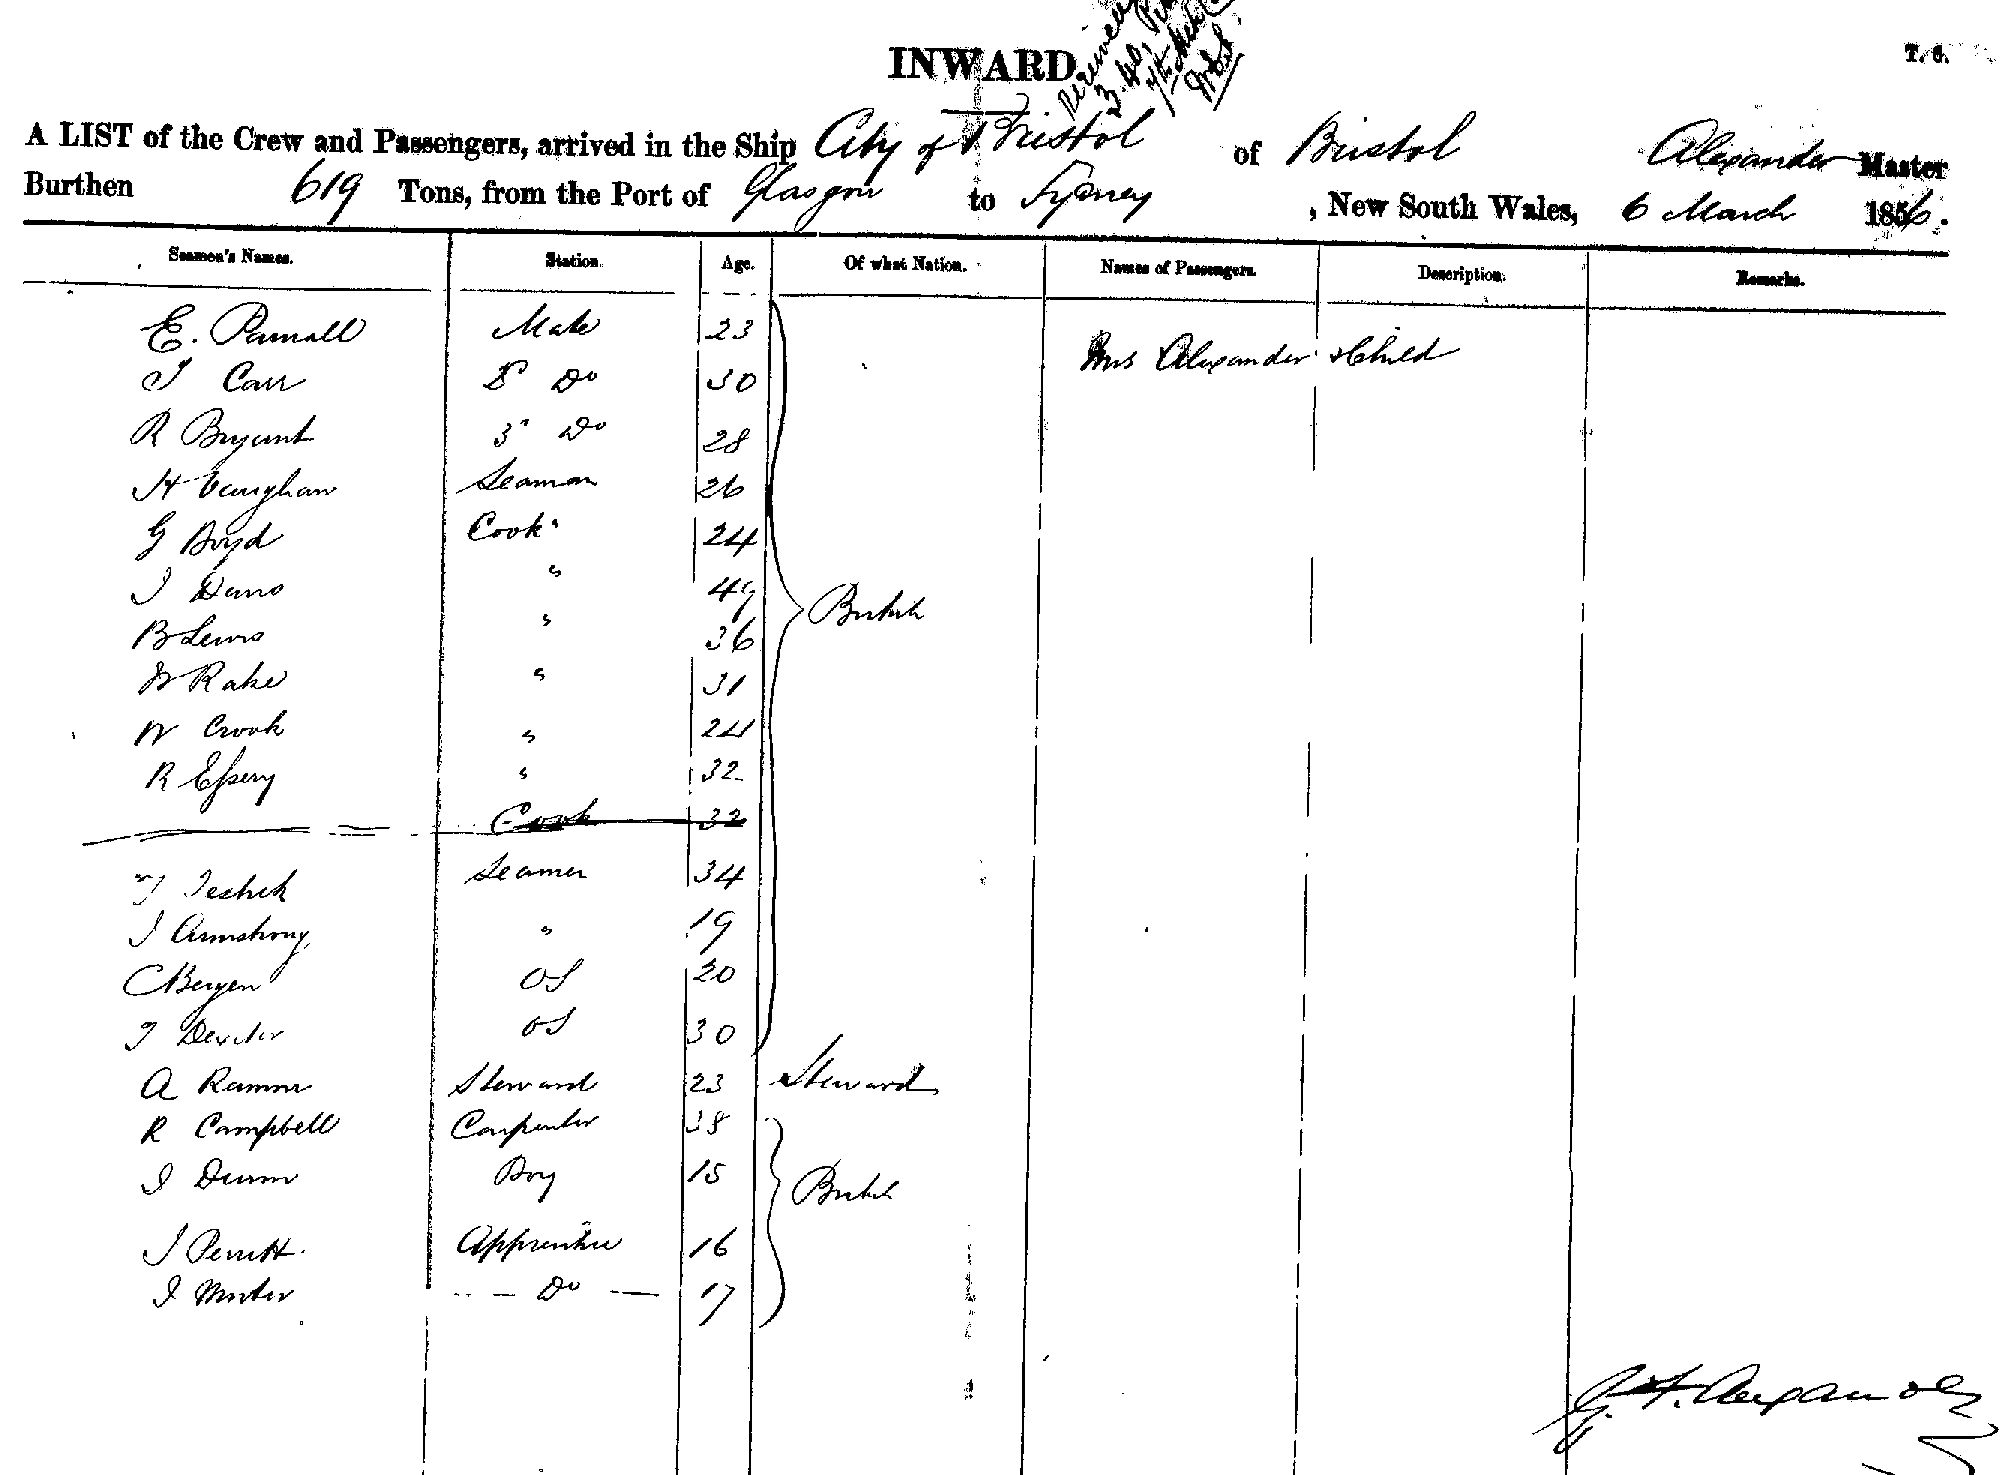 INWARD.
T. G.
A LIST of the Crew and Passengers, arrived in the Ship City of Bristol of Bristol Alexander Master
Burthen 619 Tons, from the Port of Glasgow to Sydney, New South Wales, 6 March 1856.
Seamen's Names. Station. Age. Of what Nation. Names of Passengers. Description. Remarks.
E. Parnall Mate 23 Mrs Alexander & Child
J Carr 2d Do 30
R Bryant 3d Do 28
H Vaughan Seaman 26
G Boyd Cook " 24
J Davis " 49 British
B Lewis " 36
W Rake " 31
W Crook " 24
R Essery " 32
Cook 32
Seamen 34
J Armstrong " 19
C Bergen OS 20
J Dexter OS 30
A Steward 23 Steward
R Campbell Carpenter 38
J Dunn Boy 15 British
J Perrett Apprentice 16
J Do 17
Alexander